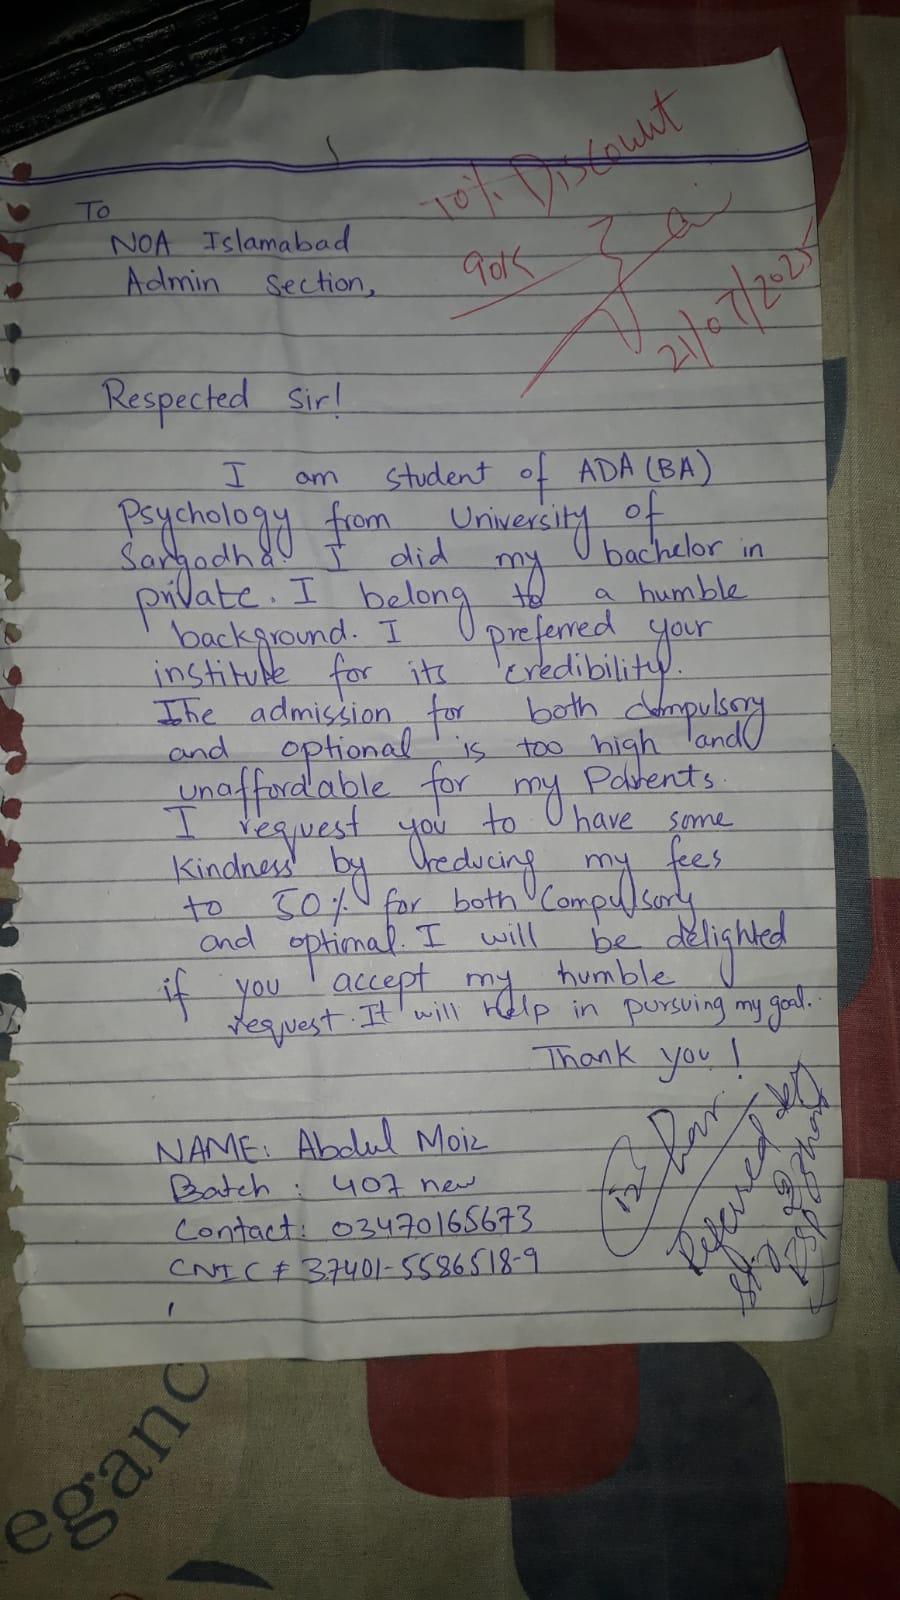 10% Discount
90K
21/07/2025
To
NOA Islamabad
Admin Section,
Respected Sir!
I am student of ADA (BA)
Psychology from University of
Sargodha. I did my bachelor in
private. I belong to a humble
background. I preferred your
institute for its credibility.
The admission for both compulsory
and optional is too high and
unaffordable for my Parents.
I request you to have some
Kindness by reducing my fees
to 50% for both Compulsory
and optimal. I will be delighted
if you accept my humble
request. It will help in pursuing my goal.
Thank you!
NAME: Abdul Moiz
Batch : 407 new
Contact: 03470165673
CNIC # 37401-5586518-9
Referred by
eganc